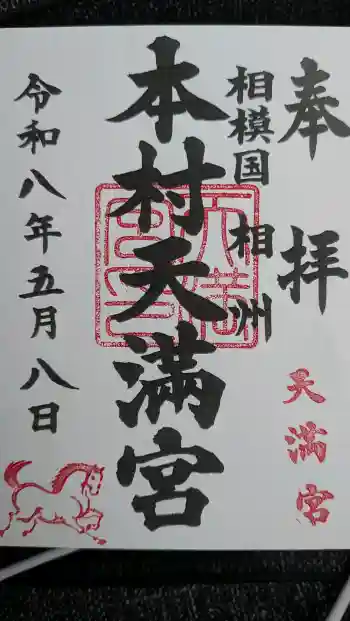 奉拝
天満宮
相模国 相州
本村天満宮
令和八年五月八日